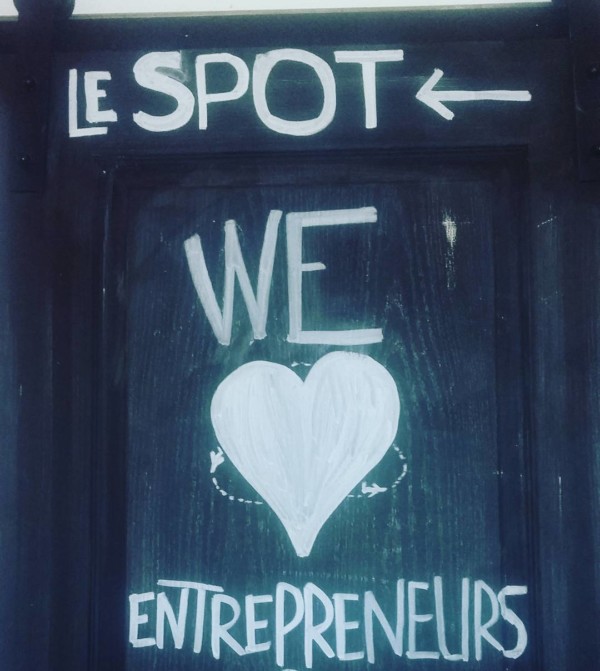 LE SPOT ←
WE
ENTREPRENEURS